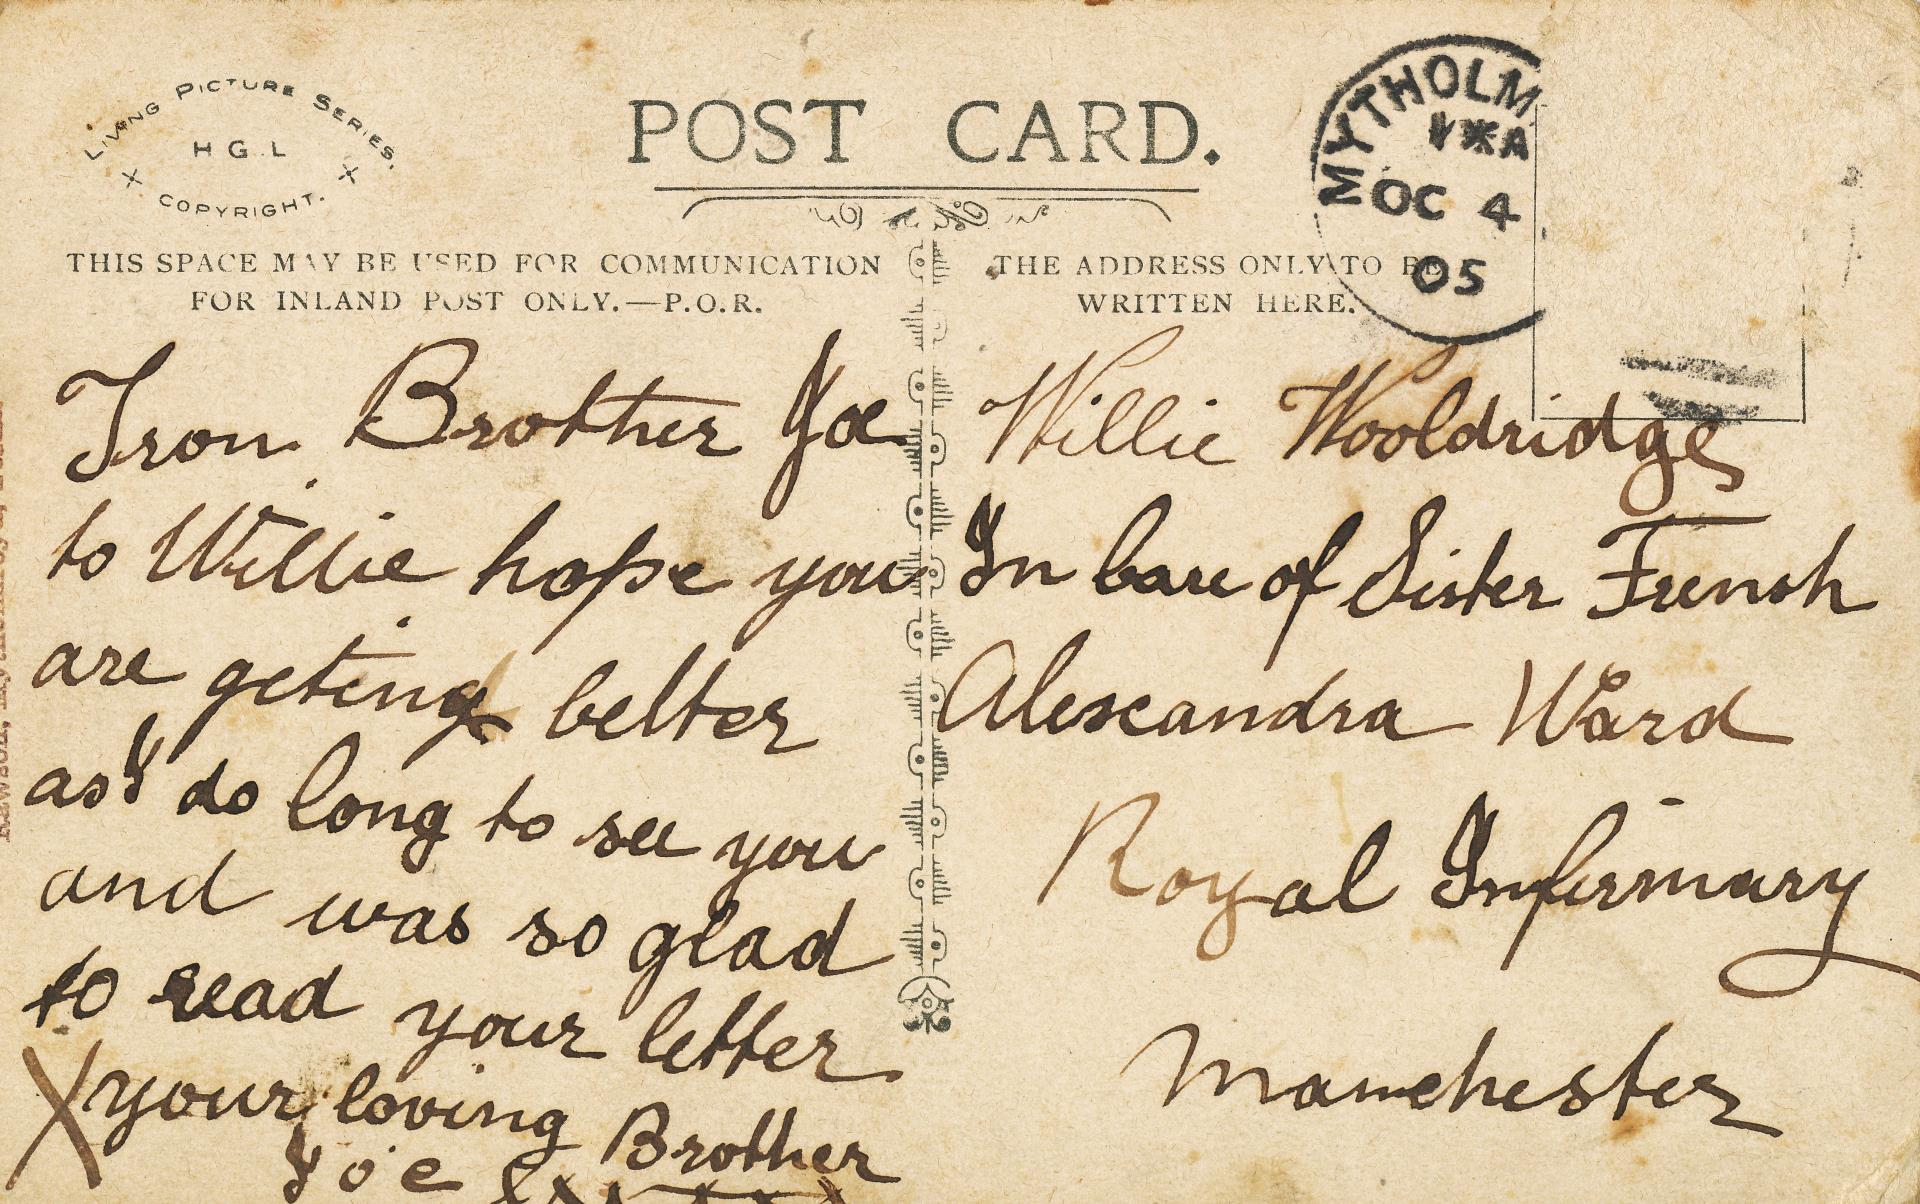 LIVING PICTURE SERIES.
H G. L
COPYRIGHT.
POST CARD.
MYTHOLM
OC 4
05
THIS SPACE MAY BE USED FOR COMMUNICATION
FOR INLAND POST ONLY.—P.O.R.
THE ADDRESS ONLY TO BE
WRITTEN HERE.
From Brother Joe
to Willie hope you
are geting better
as I do long to see you
and was so glad
to read your letter
X your loving Brother
Joe
Willie Wooldridge
In Care of Sister French
Alexandra Ward
Royal Infirmary
Manchester